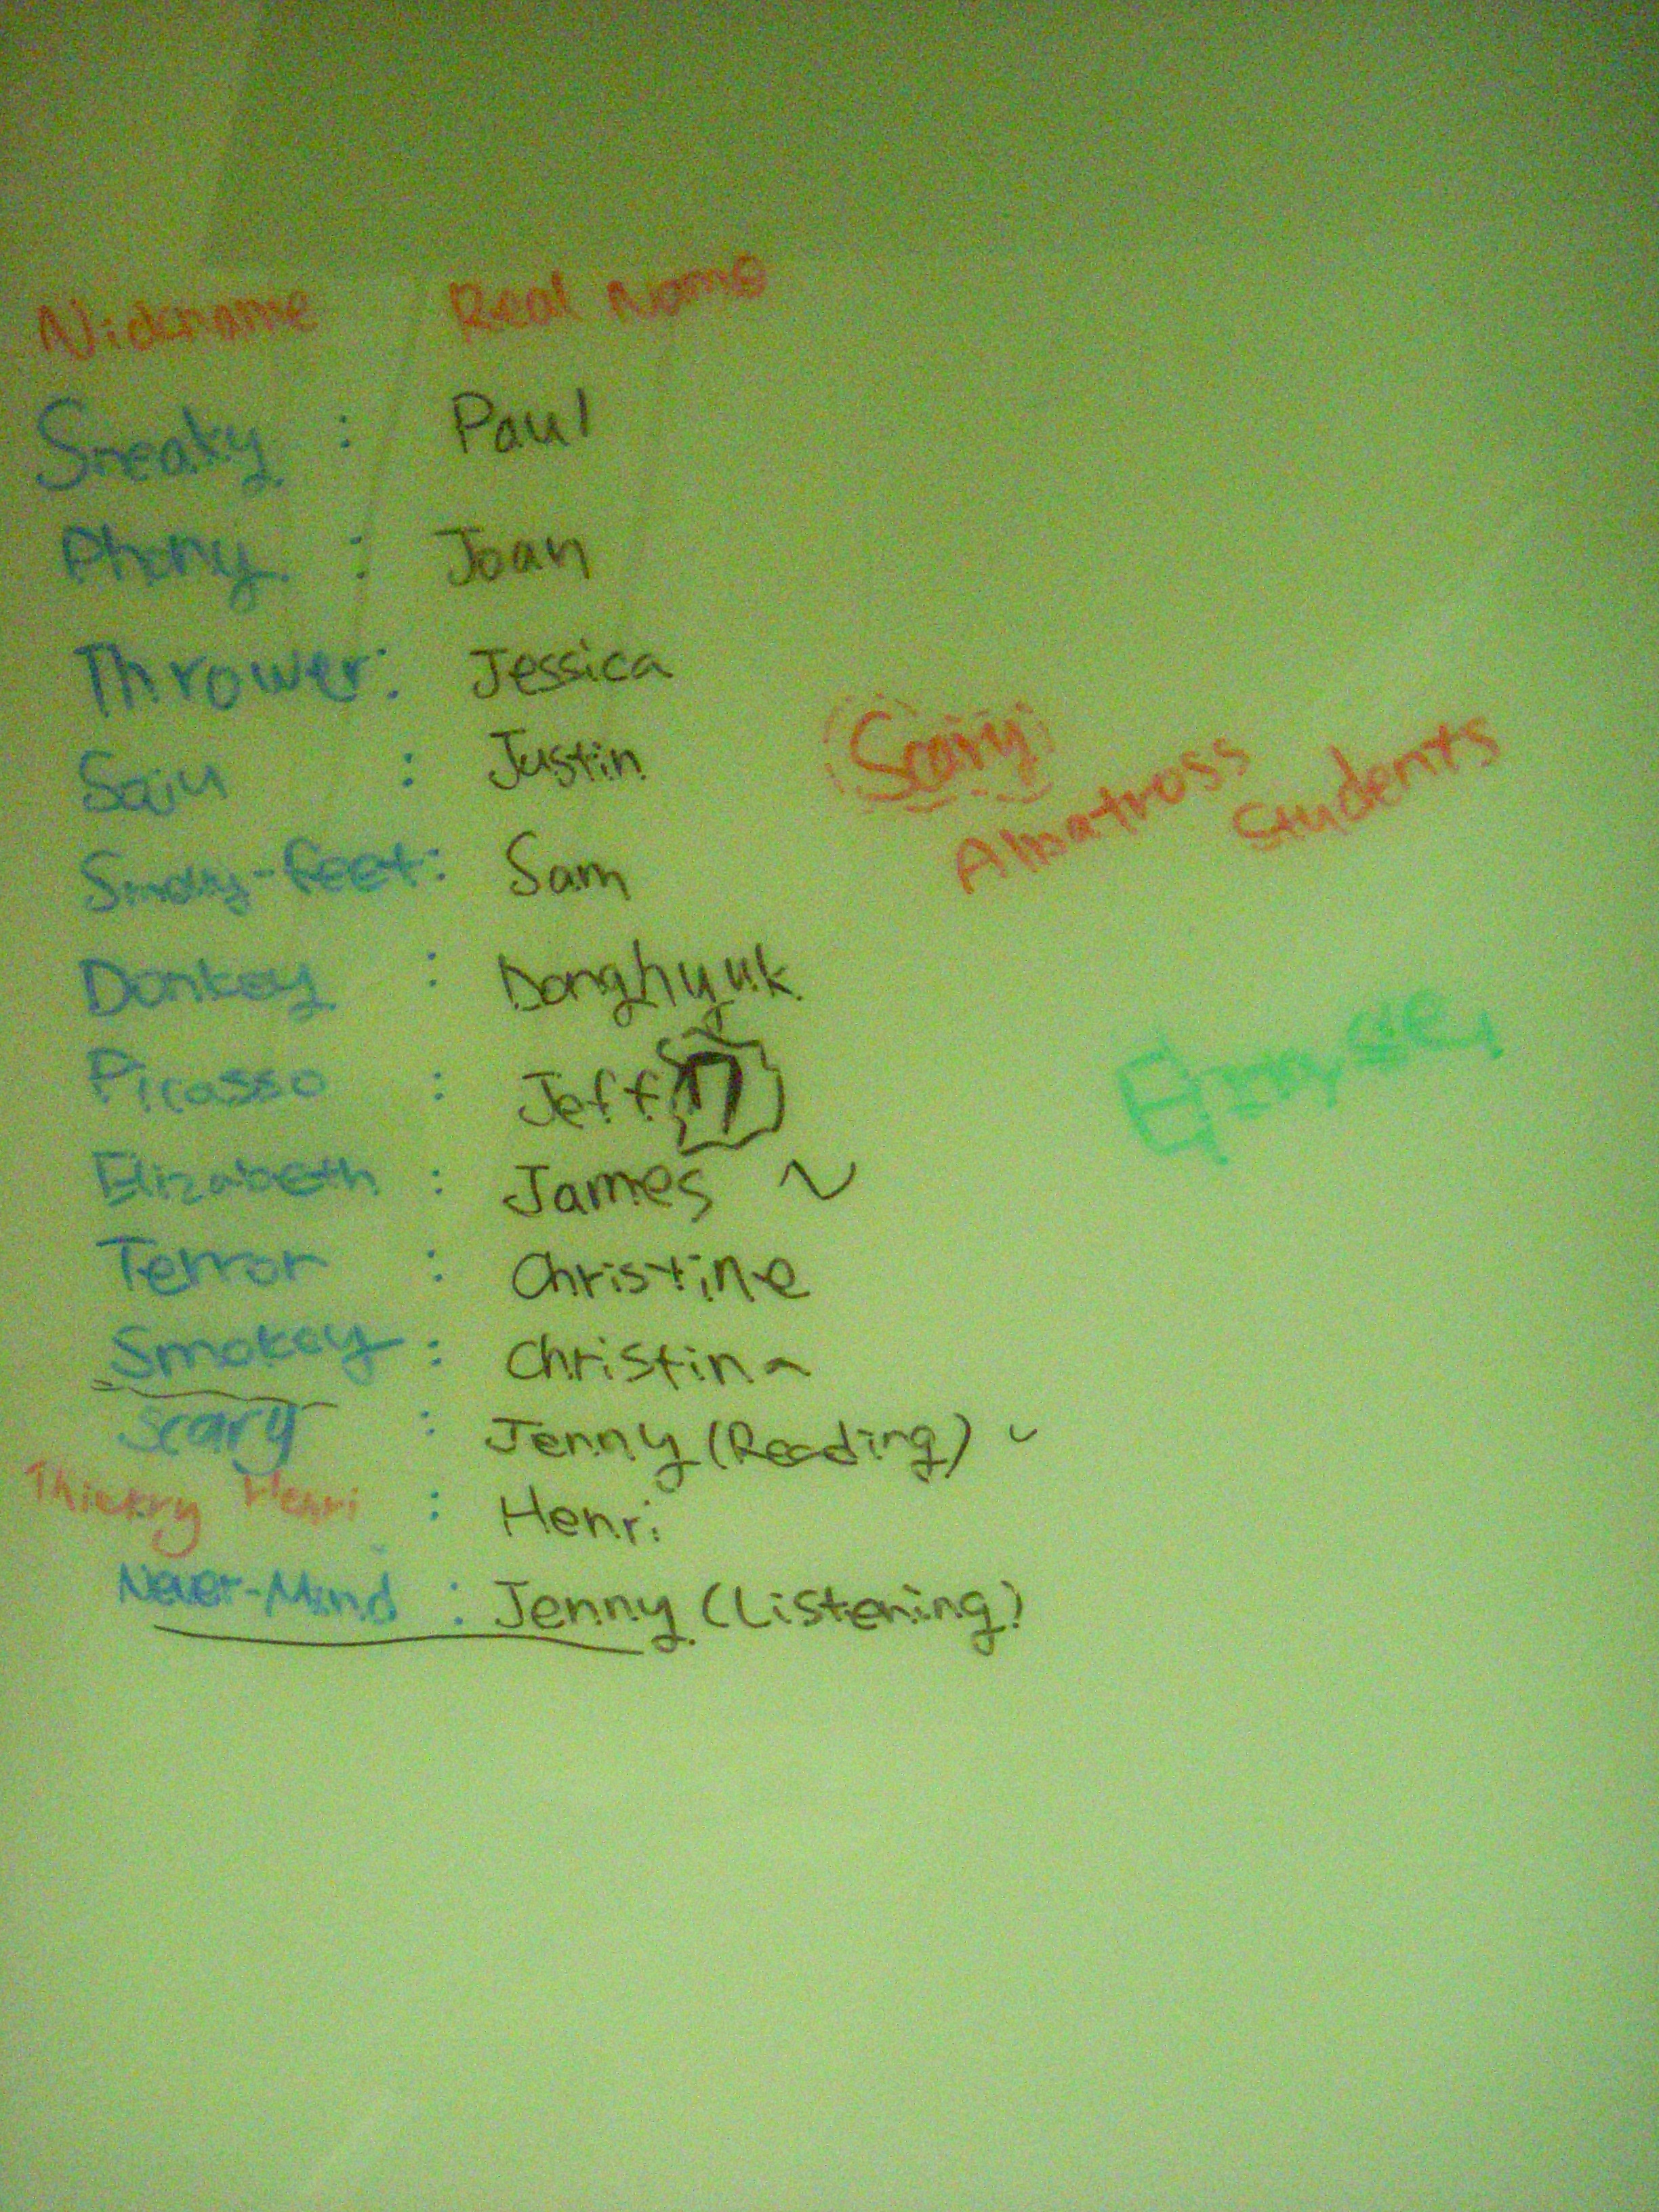 Nickname Real Name
Sneaky : Paul
Phony : Joan
Thrower : Jessica
: Justin
Scary
Albatross Students
-feet : Sam
Donkey : Donghyuk
Picasso : Jeff
Elizabeth : James
Terror : Christine
Smokey : Christina
Scary : Jenny (Reading)
Thierry Henri : Henri
Never-Mind : Jenny (Listening)